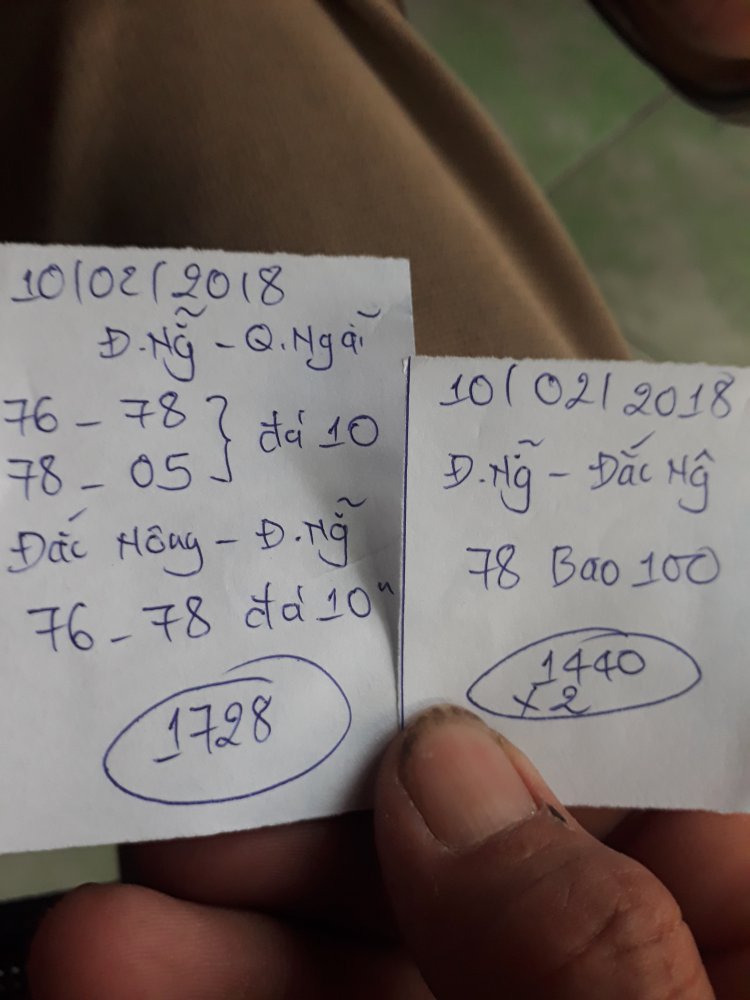 10/02/2018
Đ.Nẵg - Q.Ngãi
76 - 78 } đá 10
78 - 05
Đắc Nông - Đ.Nẵg
76 - 78 đá 10"
1728
10/02/2018
Đ.Nẵg - Đắc Nôg
78 Bao 100
1440
x2